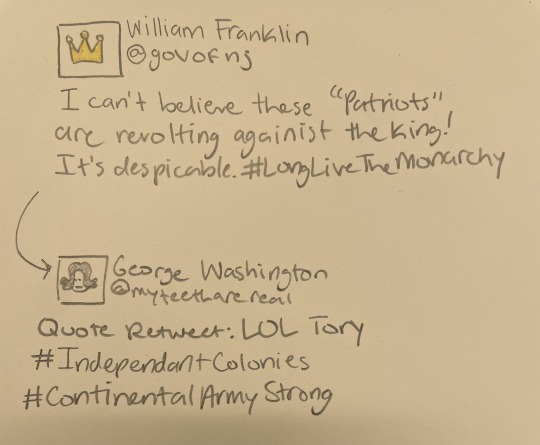 William Franklin
@govofnj
I can't believe these "Patriots"
are revolting againist the King!
It's despicable. #LongLiveTheMonarchy
George Washington
@myteetharereal
Quote Retweet: LOL Tory
#IndependantColonies
#Continental Army Strong